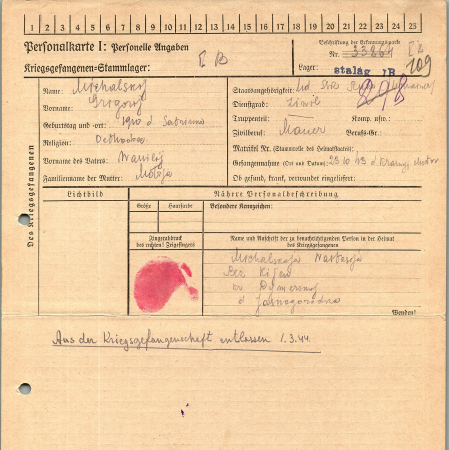 1 2 3 4 5 6 7 8 9 10 11 12 13 14 15 16 17 18 19 20 21 22 23 24 25
Personalkarte I: Personelle Angaben
Kriegsgefangenen-Stammlager: I B
Beschriftung der Erkennungsmarke
Nr. 33864 I B
Lager: stalag IB 209
Des Kriegsgefangenen
Name: Michalskoj
Vorname: Grigorij
Geburtstag und -ort: 1910 d
Religion: Orthodox
Vorname des Vaters: Wassilij
Familienname der Mutter:
Staatsangehörigkeit:
Dienstgrad: Zivil
Truppenteil: Komp. usw.:
Zivilberuf: Mauer Berufs-Gr.:
Matrikel Nr. (Stammrolle des Heimatstaates):
Gefangennahme (Ort und Datum): 28.10.43 d
Ob gesund, krank, verwundet eingeliefert:
Lichtbild
Nähere Personalbeschreibung
Größe Haarfarbe Besondere Kennzeichen:
Fingerabdruck
des rechten! Zeigefingers
Name und Anschrift der zu benachrichtigenden Person in der Heimat
des Kriegsgefangenen
Michalskaja
Bez Kijew
d Jasnogorodka
Wenden!
Aus der Kriegsgefangenschaft entlassen 1.3.44.